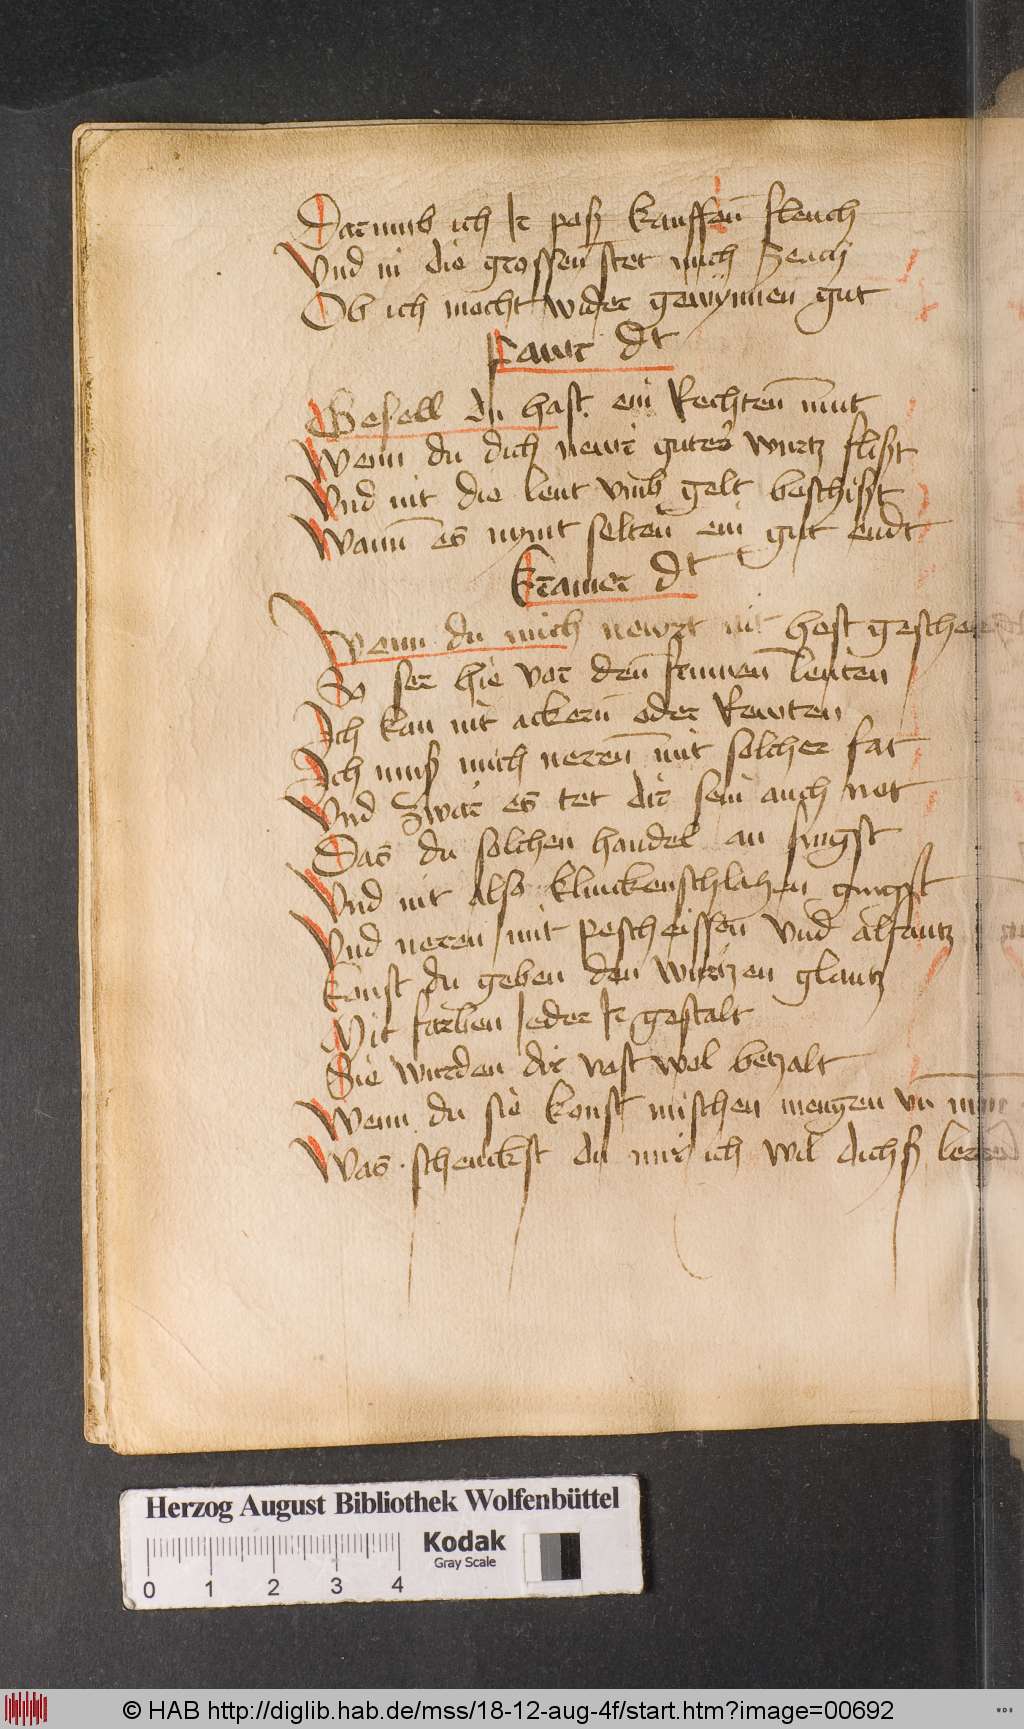 Darumb ich Ir paß kauffen fleuch
Vnd in die grossen stet mich zeuch
Ob ich mocht wider gewynnen gut
pawr dt
Gesell du hast ein Rechten mut
Wenn du dich newr guter wurtz flißt
Vnd nit die leut vmb gelt beschißt
Wann es nymt selten ein gut endt
Kramer dt
Wenn du mich newrt nit hest geschent
So ser hie vor den frumen leuten
Ich kan nit ackern oder Rewten
Ich muß mich neren mit solcher fat
Vnd zwar es tet dir sein auch not
Das du solchen handel an fingst
Vnd nit also klinckenschlahen gingst
Vnd neren mit pescheissen vnd alfantz
Konst du geben den wurtzen glantz
Mit farben Ieder Ir gestalt
Sie wurden dir vast wol betzalt
Wenn du sie konst mischen mengen vn
Was schenckst du mir ich wil dichß leren
Herzog August Bibliothek Wolfenbüttel
Kodak
Gray Scale
0 1 2 3 4
© HAB http://diglib.hab.de/mss/18-12-aug-4f/start.htm?image=00692